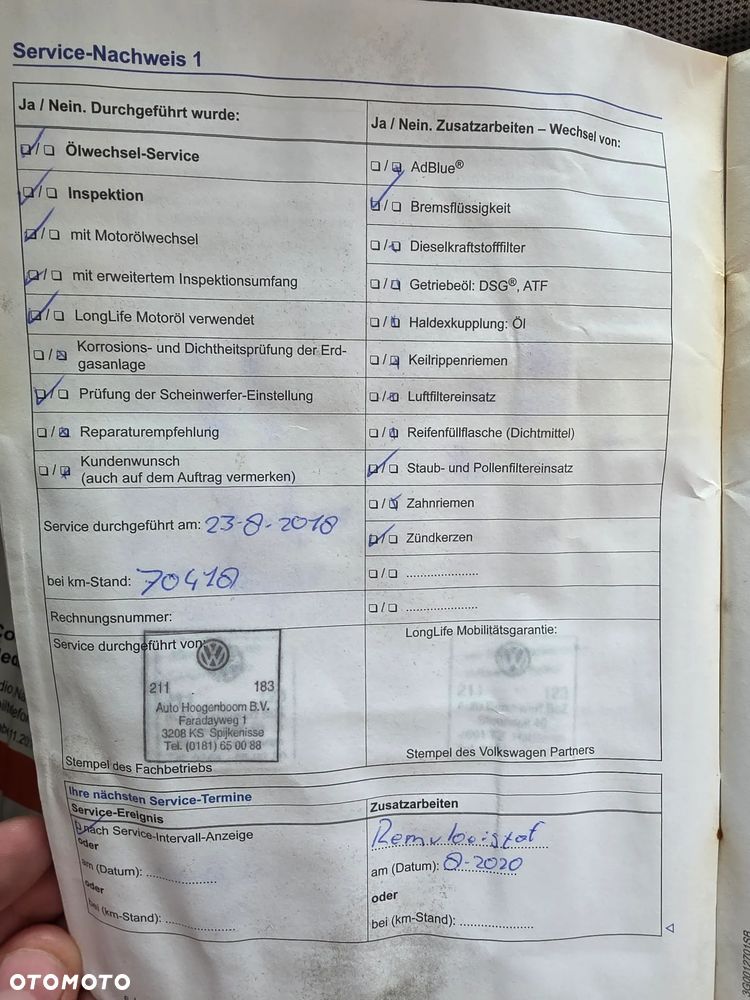 Service-Nachweis 1
Ja / Nein. Durchgeführt wurde:
Ölwechsel-Service
Inspektion
mit Motorölwechsel
mit erweitertem Inspektionsumfang
LongLife Motoröl verwendet
Korrosions- und Dichtheitsprüfung der Erd-
gasanlage
Prüfung der Scheinwerfer-Einstellung
Reparaturempfehlung
Kundenwunsch
(auch auf dem Auftrag vermerken)
Service durchgeführt am: 23-8-2018
bei km-Stand: 70418
Rechnungsnummer:
Service durchgeführt von:
211 183
Auto Hoogenboom B.V.
Faradayweg 1
3208 KS Spijkenisse
Tel. (0181) 65 00 88
Stempel des Fachbetriebs
Ja / Nein. Zusatzarbeiten – Wechsel von:
AdBlue®
Bremsflüssigkeit
Dieselkraftstofffilter
Getriebeöl: DSG®, ATF
Haldexkupplung: Öl
Keilrippenriemen
Luftfiltereinsatz
Reifenfüllflasche (Dichtmittel)
Staub- und Pollenfiltereinsatz
Zahnriemen
Zündkerzen
LongLife Mobilitätsgarantie:
Stempel des Volkswagen Partners
Ihre nächsten Service-Termine
Service-Ereignis
nach Service-Intervall-Anzeige
oder
am (Datum):
oder
bei (km-Stand):
Zusatzarbeiten
Remvloeistof
am (Datum): 8-2020
oder
bei (km-Stand):
3G0012701SB
OTOMOTO